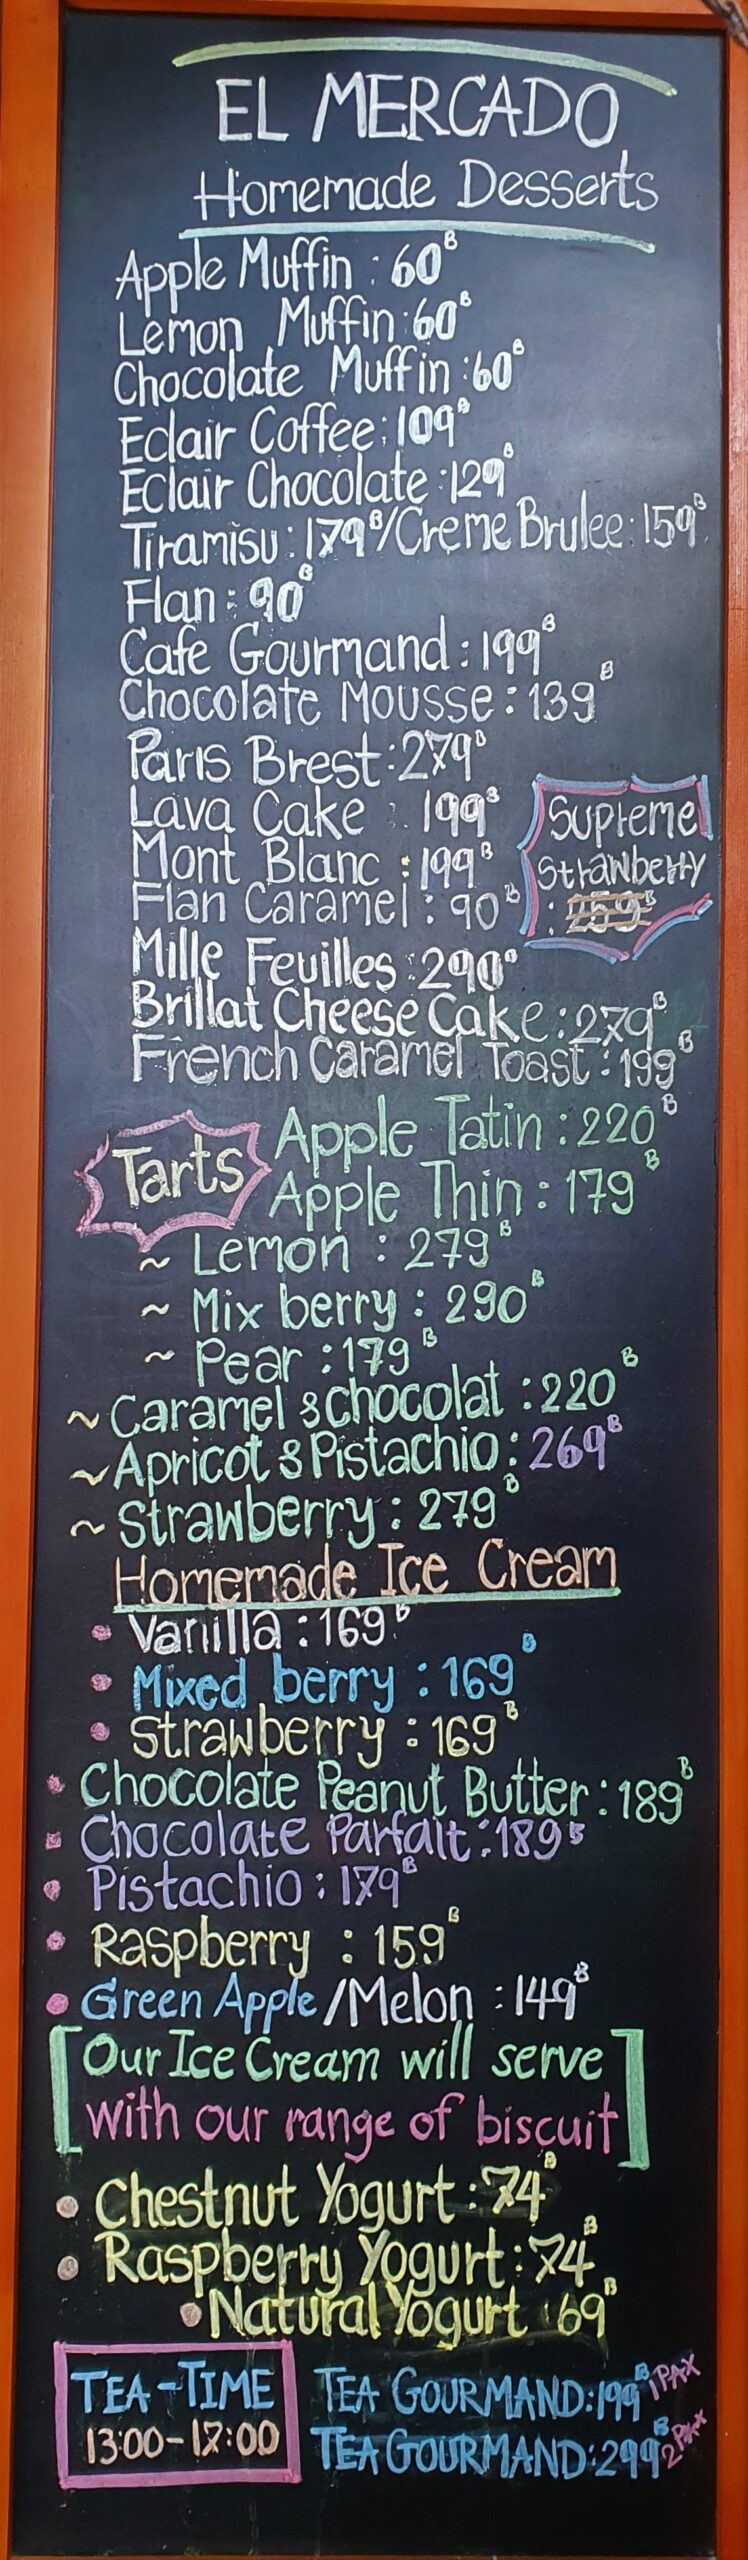 EL MERCADO
Homemade Desserts
Apple Muffin : 60฿
Lemon Muffin : 60฿
Chocolate Muffin : 60฿
Eclair Coffee : 109฿
Eclair Chocolate : 129฿
Tiramisu : 179฿/Creme Brulee : 159฿
Flan : 90฿
Cafe Gourmand : 199฿
Chocolate Mousse : 139฿
Paris Brest : 279฿
Lava Cake : 199฿
Mont Blanc : 199฿
Flan Caramel : 90฿
Supreme
Strawberry
: 259฿
Mille Feuilles : 290฿
Brillat Cheese Cake : 279฿
French Caramel Toast : 199฿
Tarts
Apple Tatin : 220฿
Apple Thin : 179฿
~ Lemon : 279฿
~ Mix berry : 290฿
~ Pear : 179฿
~ Caramel & chocolat : 220฿
~ Apricot & Pistachio : 269฿
~ Strawberry : 279฿
Homemade Ice Cream
• Vanilla : 169฿
• Mixed berry : 169฿
• Strawberry : 169฿
• Chocolate Peanut Butter : 189฿
• Chocolate Parfait : 189฿
• Pistachio : 179฿
• Raspberry : 159฿
• Green Apple/Melon : 149฿
[Our Ice Cream will serve
with our range of biscuit]
• Chestnut Yogurt : 74฿
• Raspberry Yogurt : 74฿
• Natural Yogurt : 69฿
TEA-TIME
13:00-17:00
TEA GOURMAND : 199฿ 1 PAX
TEA GOURMAND : 299฿ 2 PAX